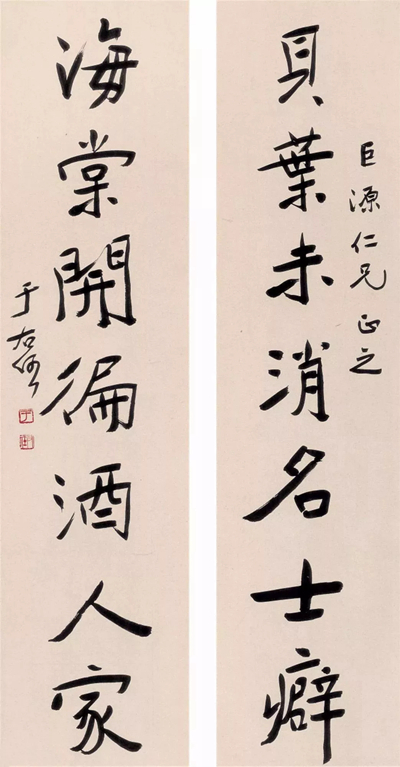 貝葉未消名士癖
巨源仁兄正之
海棠開徧酒人家
于右任